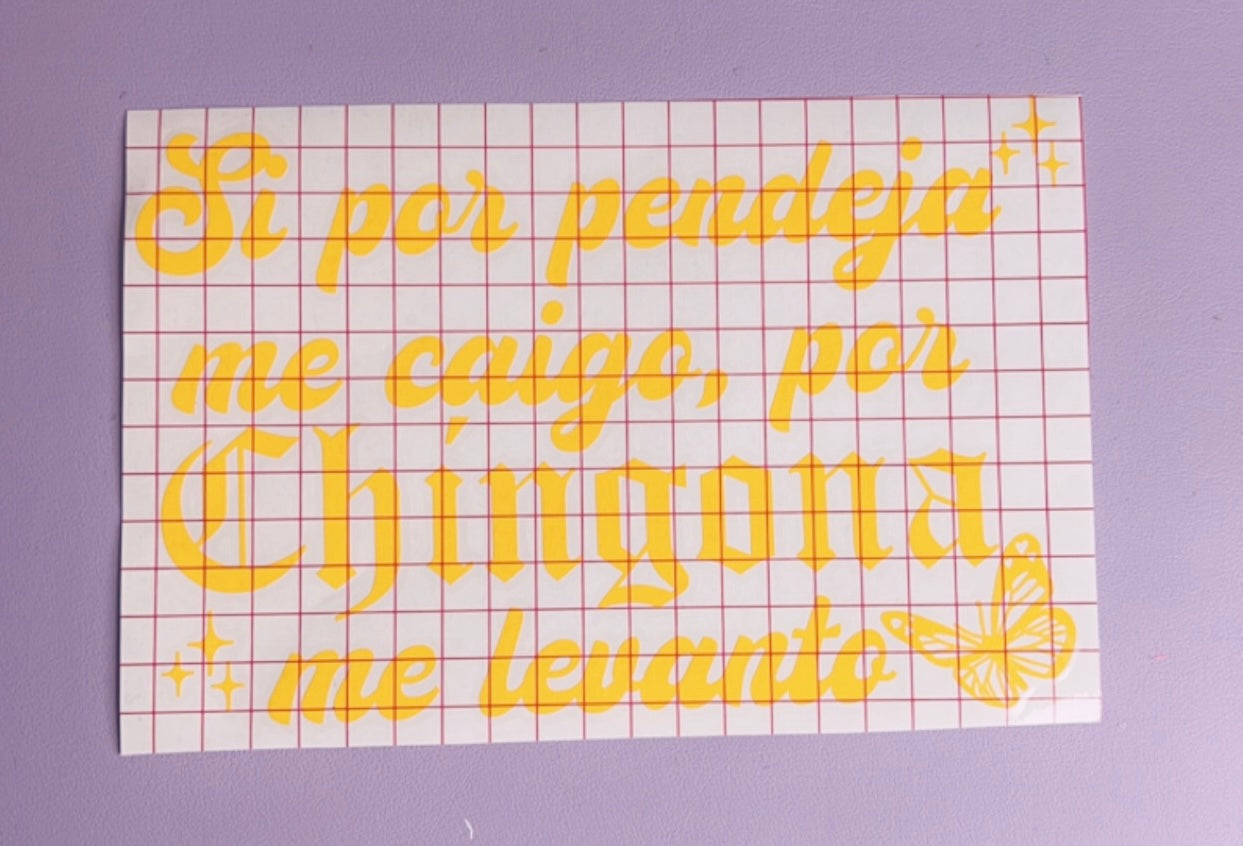 Si por pendeja
me caigo, por
Chingona
me levanto